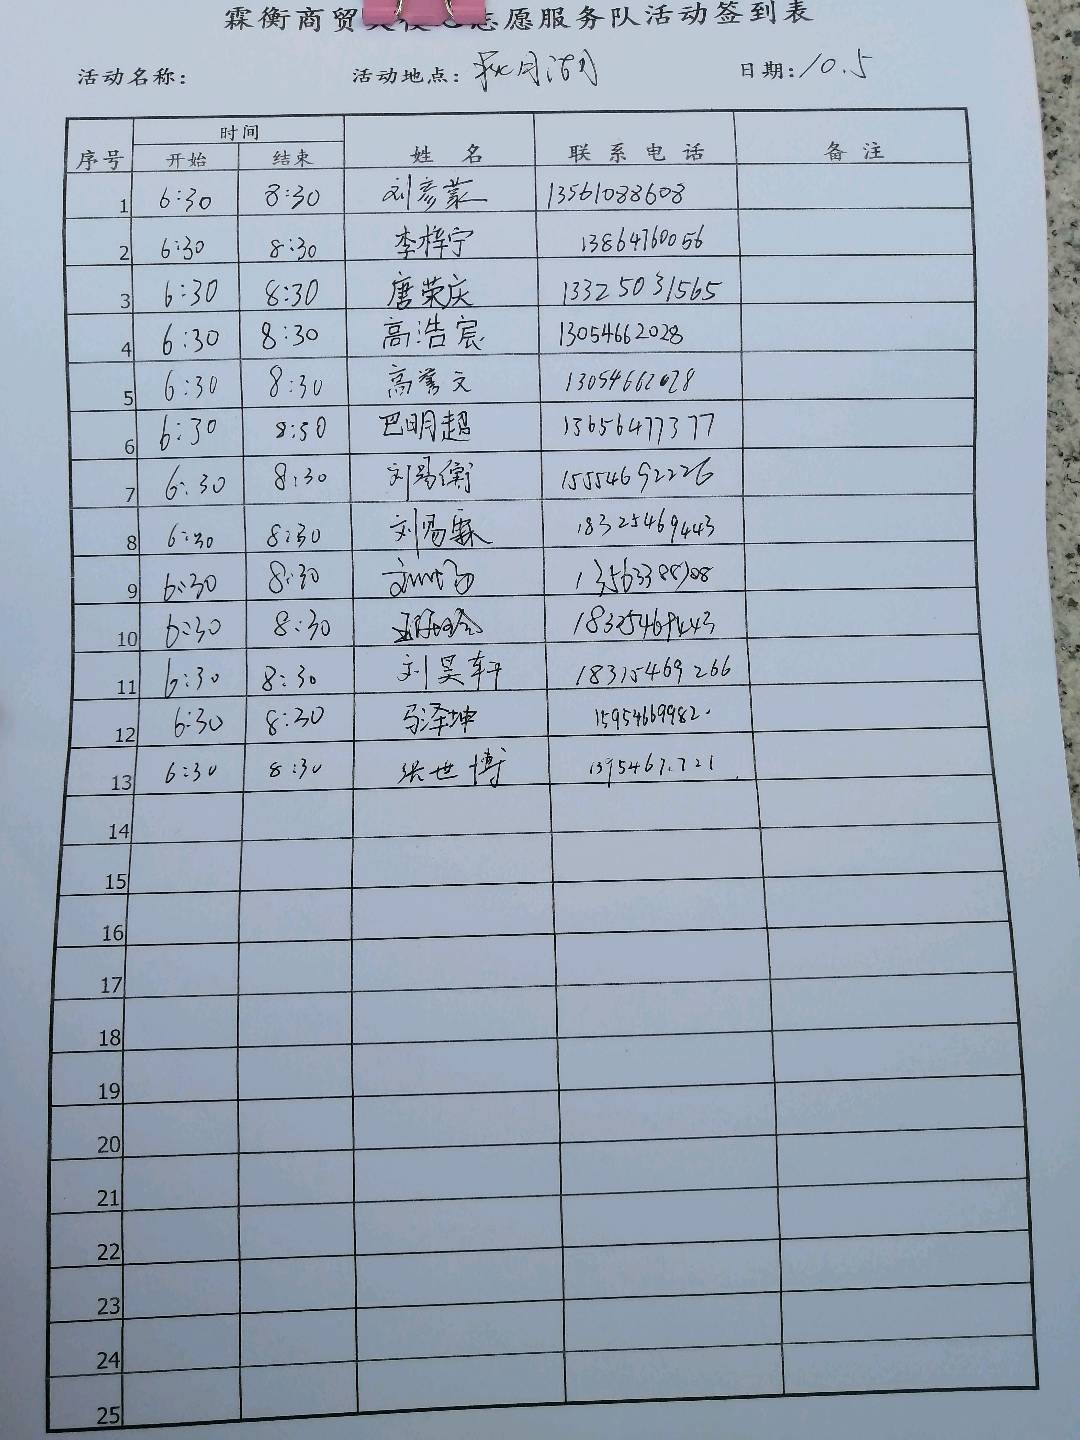 霖衡商贸 志愿服务队活动签到表
活动名称: 活动地点: 日期: 10.5
序号 时间 姓名 联系电话 备注
开始 结束
1 6:30 8:30 刘彦蒙 13561088608
2 6:30 8:30 李梓宁 13864760056
3 6:30 8:30 唐荣庆 13325031565
4 6:30 8:30 高浩宸 13054662028
5 6:30 8:30 高誉文 13054662028
6 6:30 8:30 巴明超 13656477377
7 6:30 8:30 刘易衡 15554692226
8 6:30 8:30 刘易霖 18325469443
9 6:30 8:30
10 6:30 8:30 18325469443
11 6:30 8:30 刘昊轩 18315469266
12 6:30 8:30 马泽坤 15954669982
13 6:30 8:30 世博
14
15
16
17
18
19
20
21
22
23
24
25